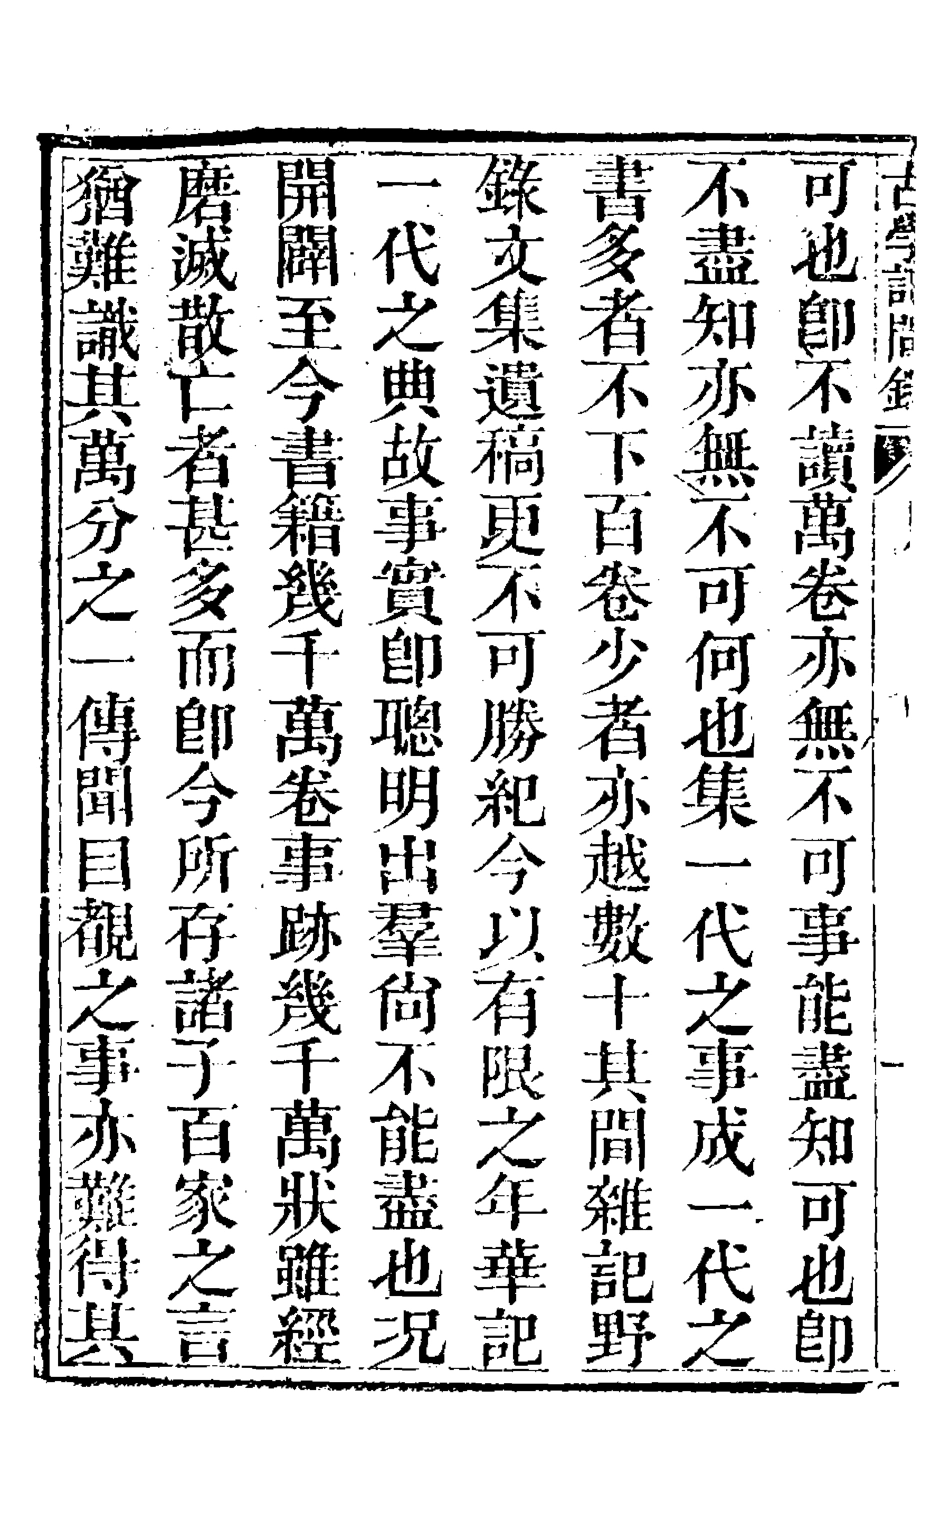 可也卽不讀萬卷亦無不可事能盡知可也卽
不盡知亦無不可何也集一代之事成一代之
書多者不下百卷少者亦越數十其間雜記野
錄文集遺稿更不可勝紀今以有限之年華記
一代之典故事實卽聰明出羣尙不能盡也况
開闢至今書籍幾千萬卷事跡幾千萬狀雖經
磨滅散亡者甚多而卽今所存諸子百家之言
猶難識其萬分之一傳聞目覩之事亦難得其